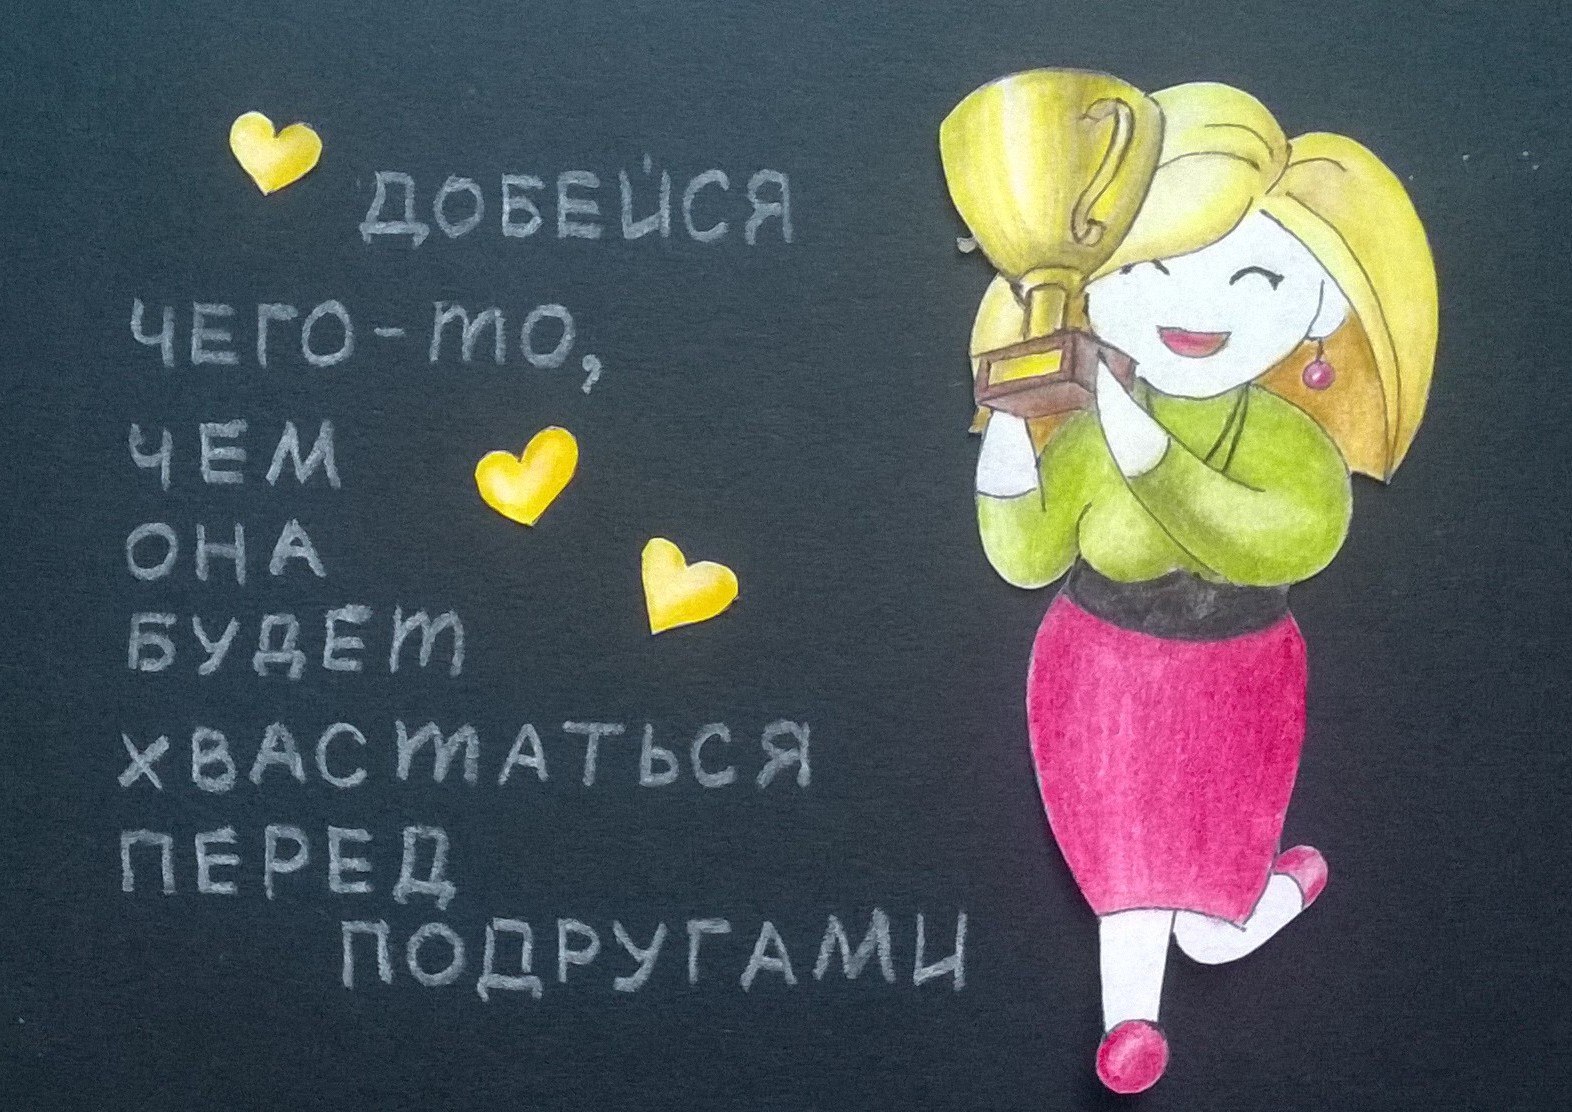 ДОБЕЙСЯ
ЧЕГО-ТО,
ЧЕМ
ОНА
БУДЕТ
ХВАСТАТЬСЯ
ПЕРЕД
ПОДРУГАМИ